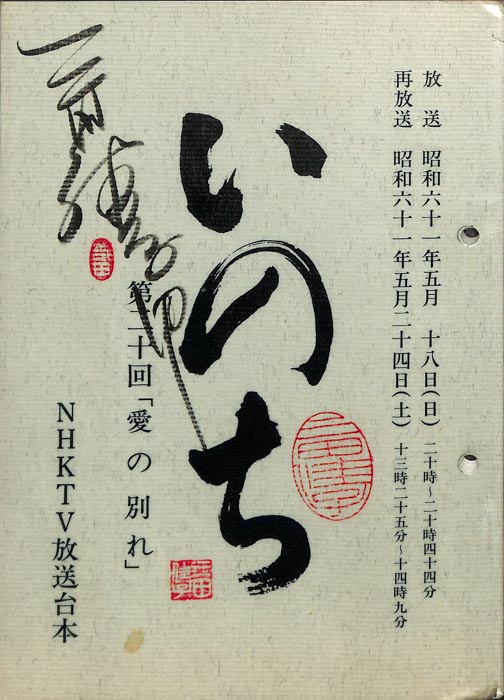 放送 昭和六十一年五月 十八日(日) 二十時~二十時四十四分
再放送 昭和六十一年五月二十四日(土) 十三時二十五分~十四時九分
いのち
第二十回「愛の別れ」
NHKTV放送台本